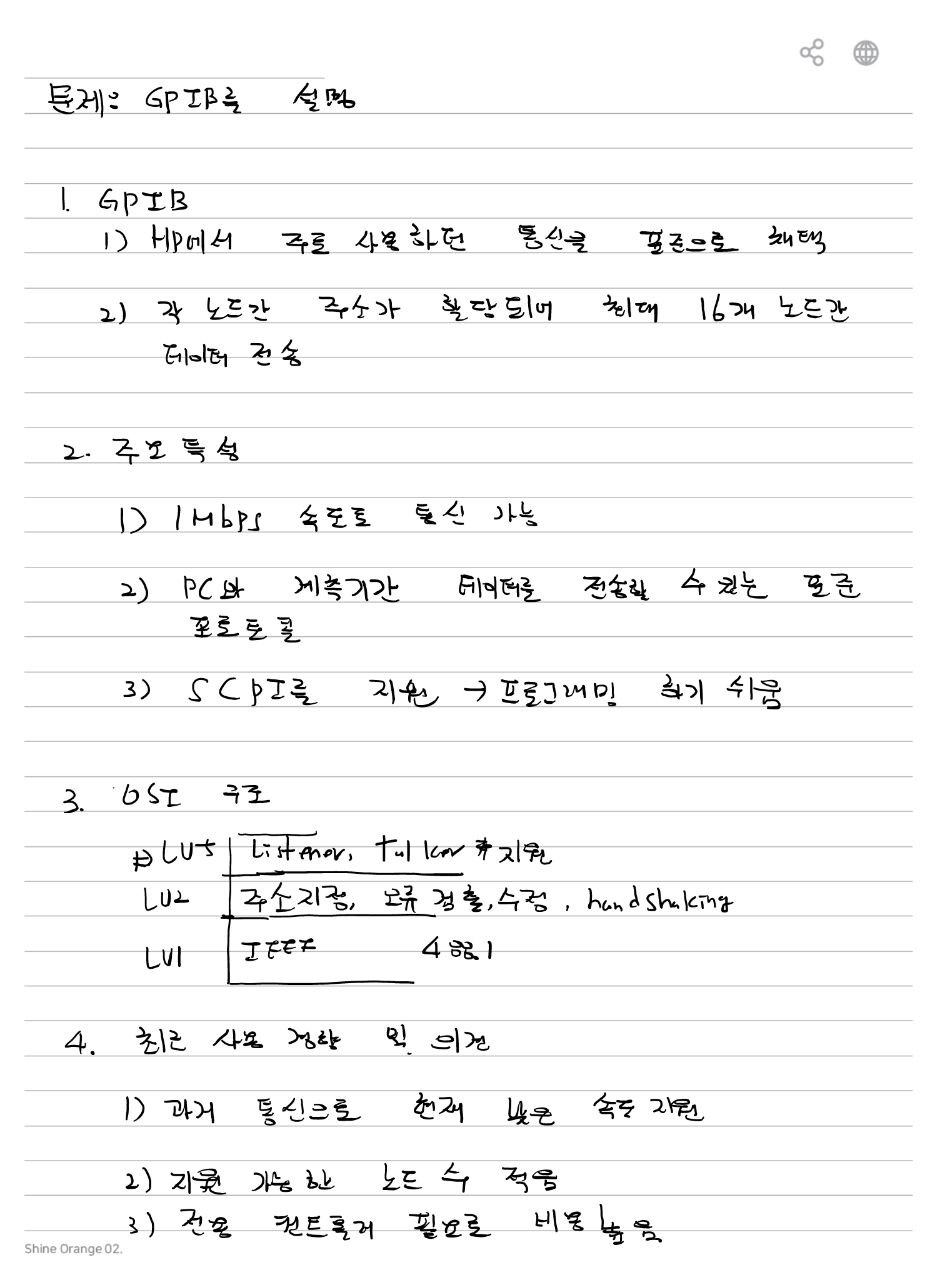 문제: GPIB를 설명
1. GPIB
1) HP에서 주로 사용하던 통신을 표준으로 채택
2) 각 노드간 주소가 할당되어 최대 16개 노드간
데이터 전송
2. 주요 특성
1) 1Mbps 속도로 통신 가능
2) PC와 계측기간 데이터를 전송할 수 있는 표준
프로토콜
3) SCPI를 지원 → 프로그래밍 하기 쉬움
3. OSI 구조
Listener, talker 지원
LV2 주소지정, 오류 검출, 수정, handshaking
LV1 IEEE 488.1
4. 최근 사용 경향 및 의견
1) 과거 통신으로 현재 낮은 속도 지원
2) 지원 가능한 노드 수 적음
3) 전용 컨트롤러 필요로 비용 높음
Shine Orange 02.